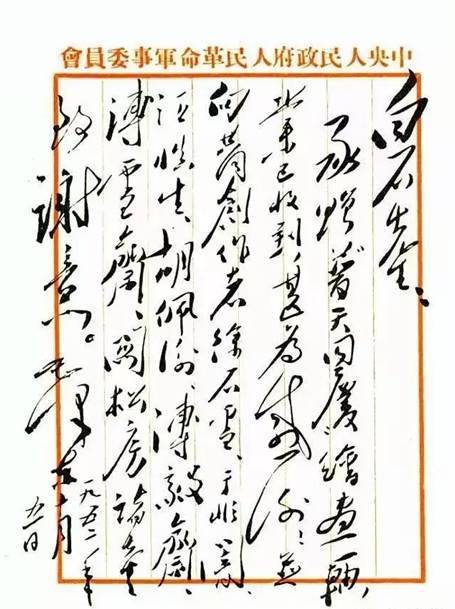 中央人民政府人民革命軍事委員會
白石先生:
承贈普天同慶繪畫一軸,
業已收到,甚為感謝!並
向共同創作者徐石雪、于非闇、
汪慎生、胡佩衡、溥毅齋、
溥雪齋、關松房諸先生
致謝意。毛澤東
一九五二年
十月
五日